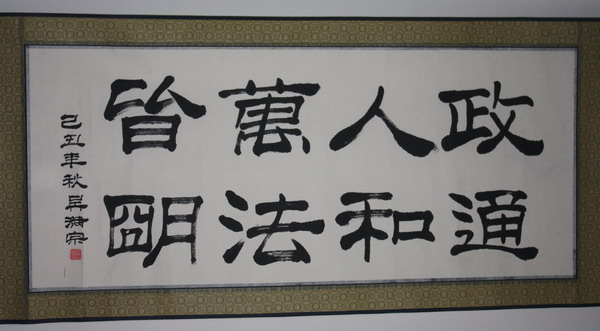 政通
人和
萬法
皆朙
己丑年秋吳宗